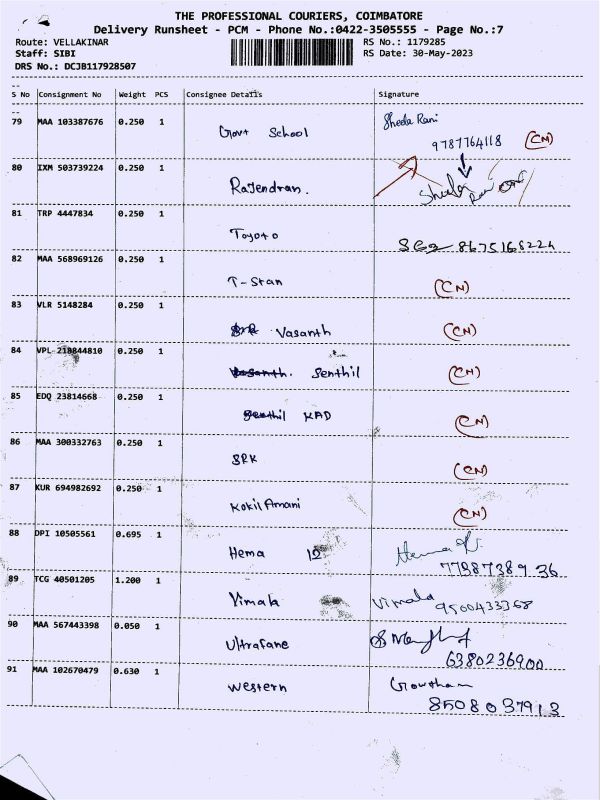 THE PROFESSIONAL COURIERS, COIMBATORE
Delivery Runsheet - PCM - Phone No.:0422-3505555 - Page No.:7
Route: VELLAKINAR RS No.: 1179285
Staff: SIBI RS Date: 30-May-2023
DRS No.: DCJB117928507
S No Consignment No Weight PCS Consignee Details Signature
79 MAA 103387676 0.250 1 Govt School Sheela Rani
9787764118 (CN)
80 IXM 503739224 0.250 1 Rajendran. Sheela Rani
81 TRP 4447834 0.250 1 Toyoto 8675168224
82 MAA 568969126 0.250 1 T-Stan (CN)
83 VLR 5148284 0.250 1 Vasanth (CN)
84 VPL 218844810 0.250 1 Vasanth. Senthil (CN)
85 EDQ 23814668 0.250 1 Senthil KAD (CN)
86 MAA 300332763 0.250 1 SRK (CN)
87 KUR 694982692 0.250 1 Kokil Amani (CN)
88 DPI 10505561 0.695 1 Hema 12 Hema
7798738936
89 TCG 40501205 1.200 1 Vimala Vimala 9500433368
90 MAA 567443398 0.050 1 Ultrafane
6380236900
91 MAA 102670479 0.630 1 Western Gowtham
8508037913